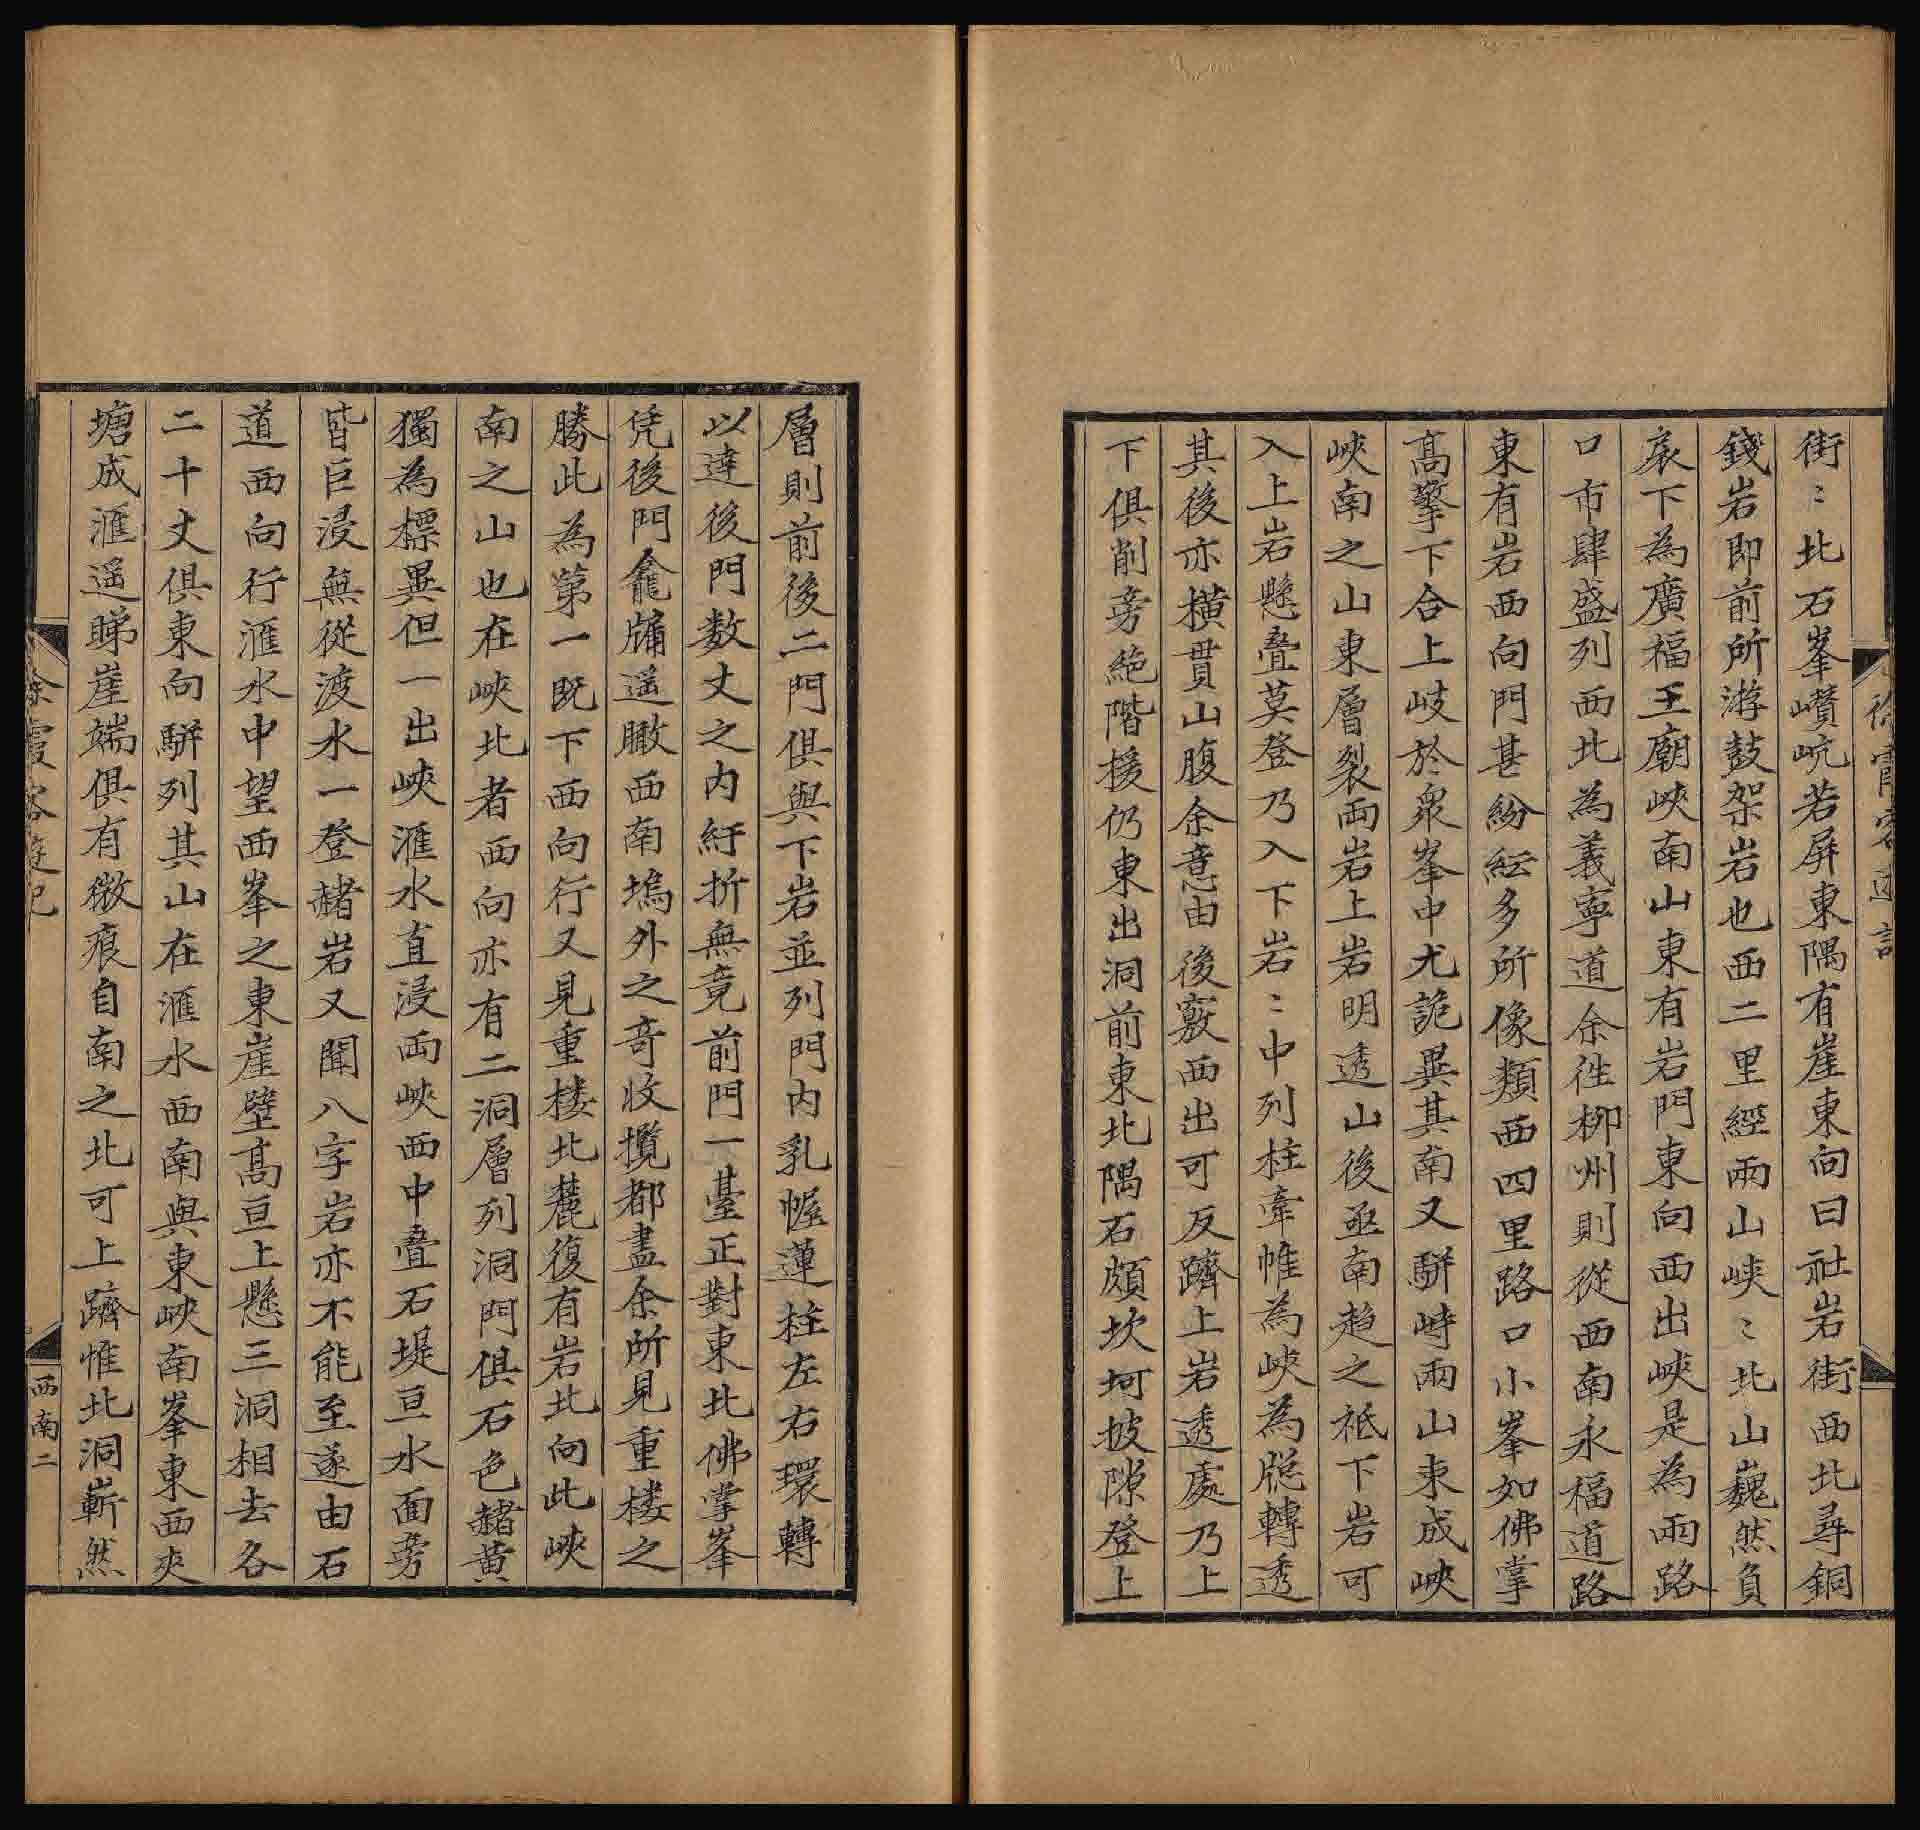 街〻北石峯巑岏若屏東隅有崖東向曰社岩街西北尋銅
錢岩即前所游鼓架岩也西二里經兩山峽〻北山巍然負
扆下為廣福王廟峽南山東有岩門東向西出峽是為兩路
口市肆盛列西北為義寧道余徃柳州則從西南永福道路
東有岩西向門甚紛紜多所像類西四里路口小峯如佛掌
髙擎下合上岐於衆峯中尤詭異其南又駢峙兩山東成峽
峽南之山東層裂兩岩上岩明透山後亟南趋之祗下岩可
入上岩懸叠莫登乃入下岩〻中列柱牽帷為峽為牕轉透
其後亦横貫山腹余意由後竅西出可反躋上岩透處乃上
下俱削旁絶階援仍東出洞前東北隅石頗坎坷披隙登上
層則前後二門俱與下岩並列門内乳幄蓮柱左右環轉
以達後門数丈之内紆折無竟前門一臺正對東北佛掌峯
凭後門龕牖遥瞰西南塢外之竒收攬都盡余所見重楼之
勝此為第一既下西向行又見重楼北麓復有岩北向此峽
南之山也在峽北者西向亦有二洞層列洞門俱石色赭黄
獨為標異但一出峽滙水直浸兩峽西中叠石堤亘水面旁
皆巨浸無從渡水一登赭岩又聞八字岩亦不能至遂由石
道西向行滙水中望西峯之東崖壁髙亘上懸三洞相去各
二十丈俱東向駢列其山在滙水西南與東峽南峯東西夾
塘成滙遥睇崖端俱有微痕自南之北可上躋惟北洞嶄然
徐霞客遊記
西南二